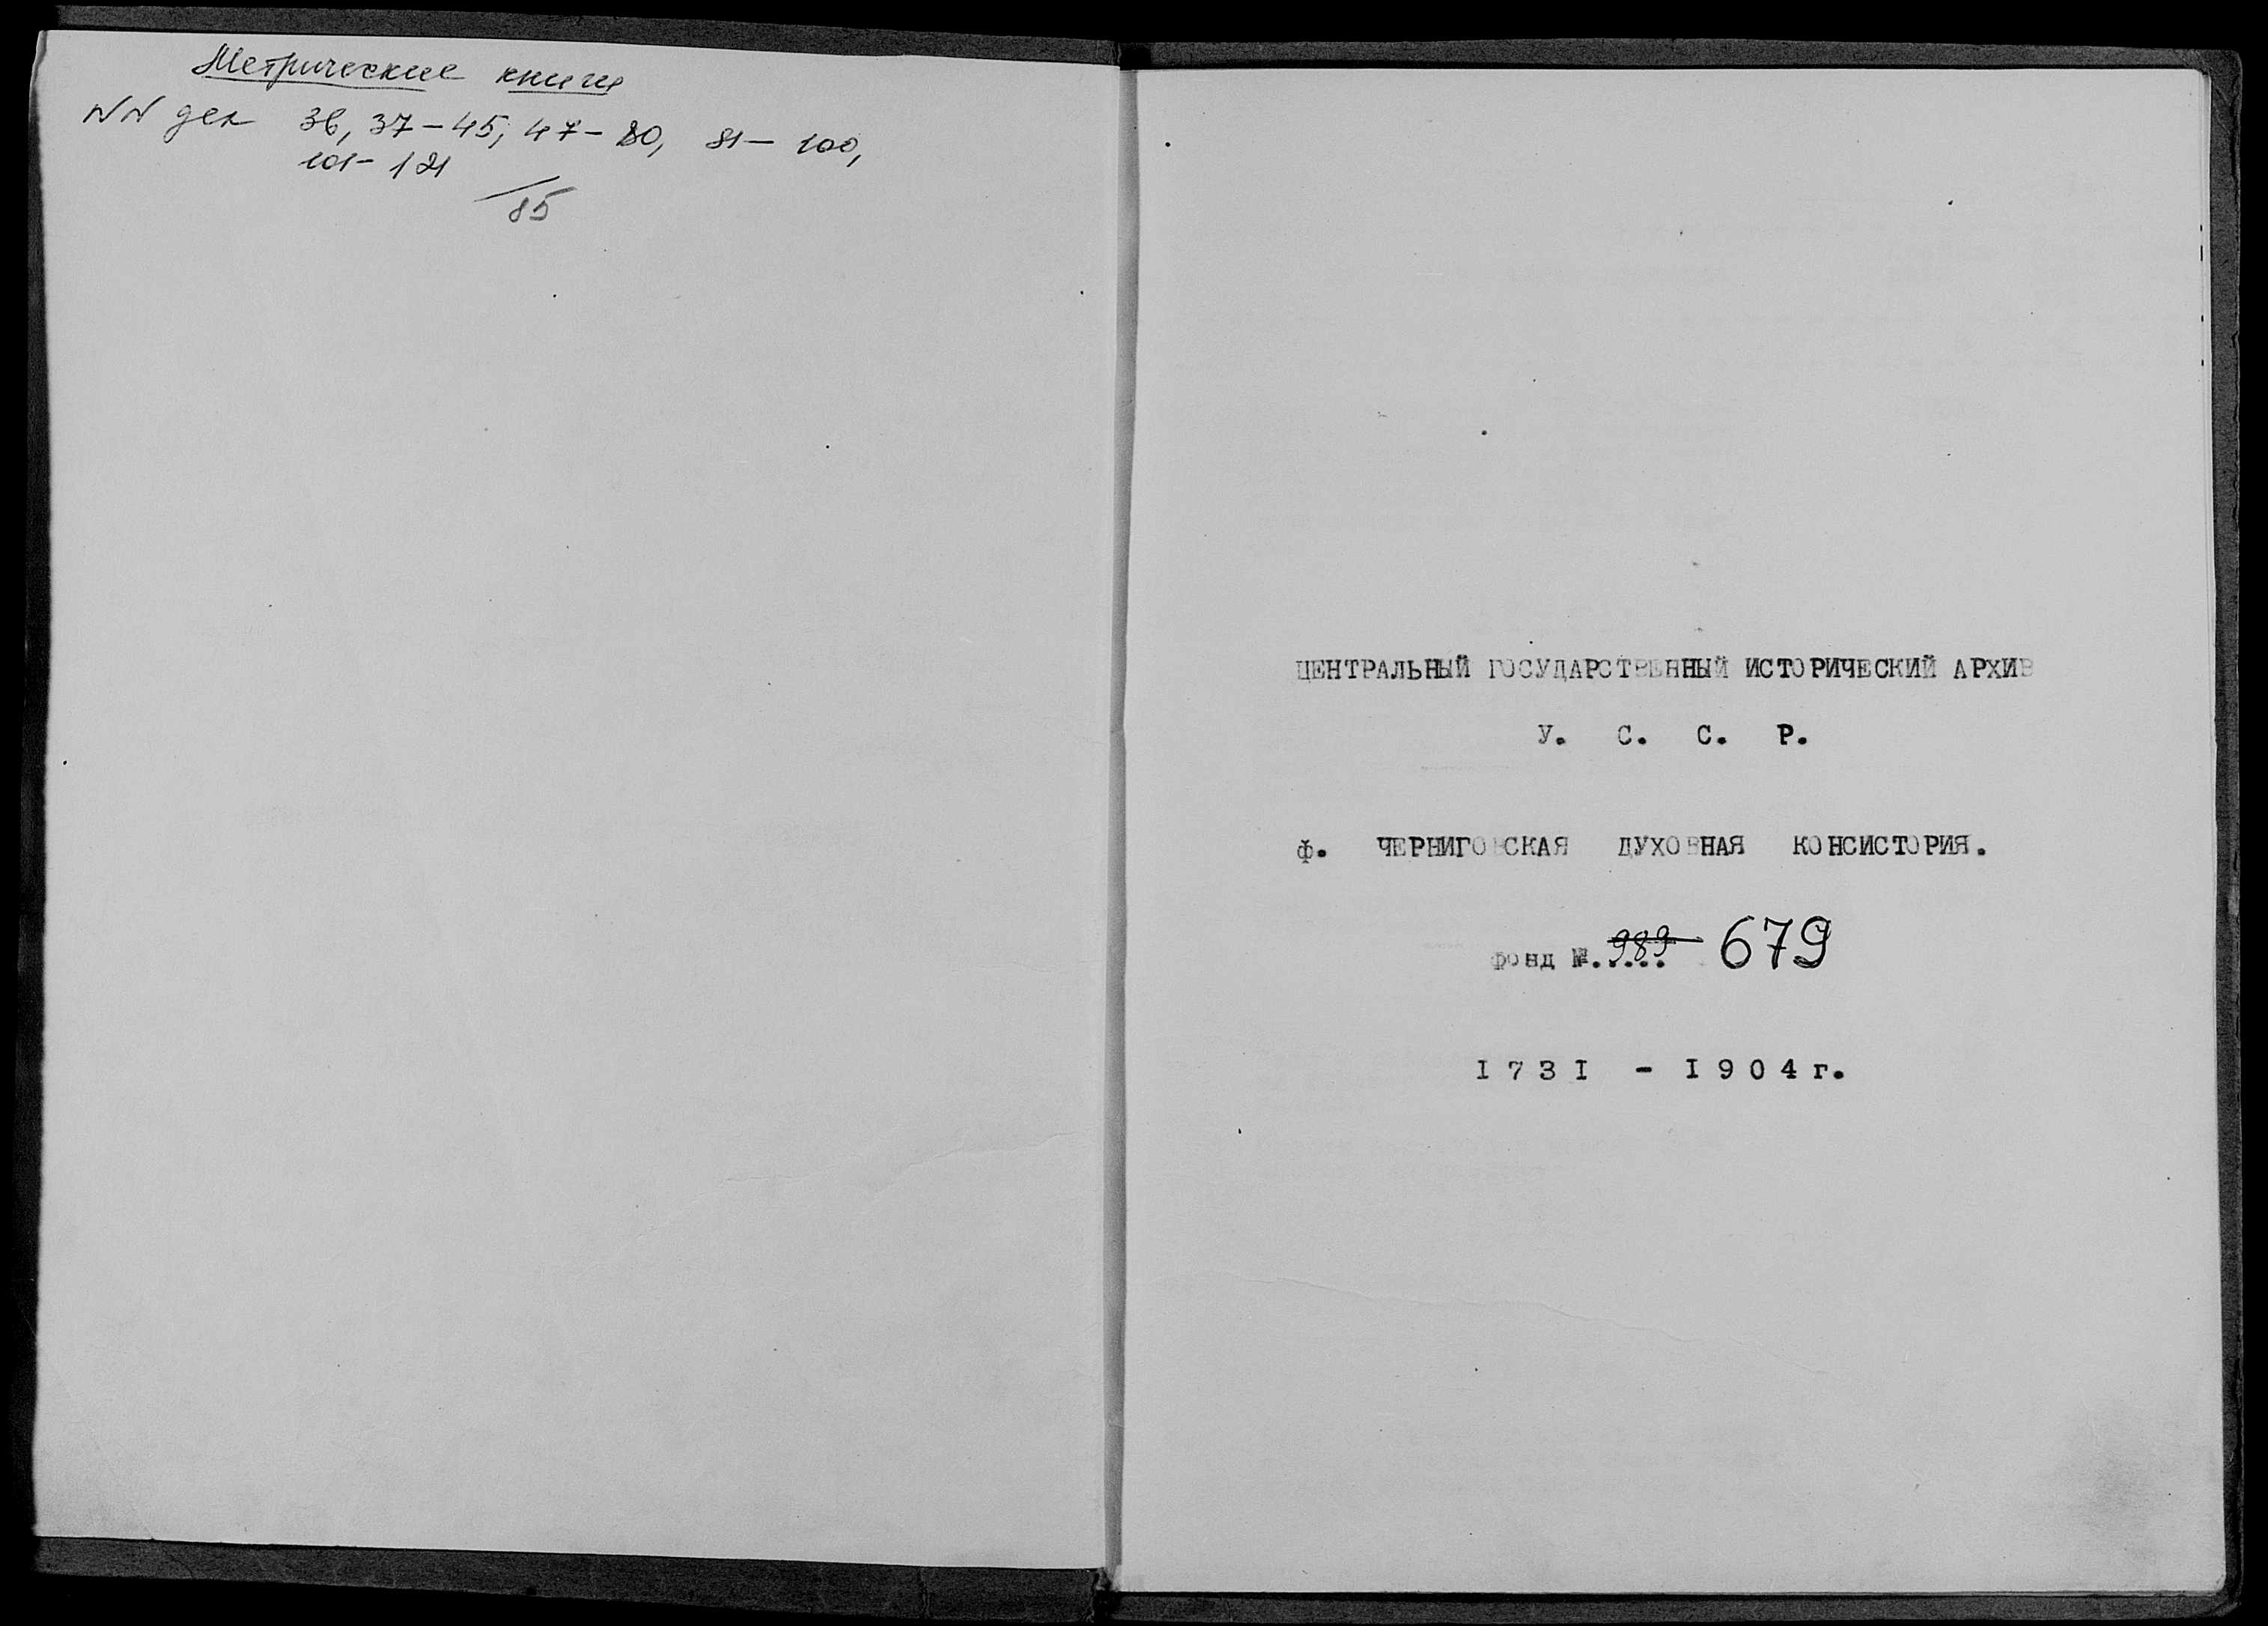 Метрические книги
NN дел 36, 37-45, 47-80, 81-100,
101-121
85
ЦЕНТРАЛЬНЫЙ ГОСУДАРСТВЕННЫЙ ИСТОРИЧЕСКИЙ АРХИВ
У. С. С. Р.
Ф. ЧЕРНИГОВСКАЯ ДУХОВНАЯ КОНСИСТОРИЯ.
фонд №. 989 679
1731 - 1904г.